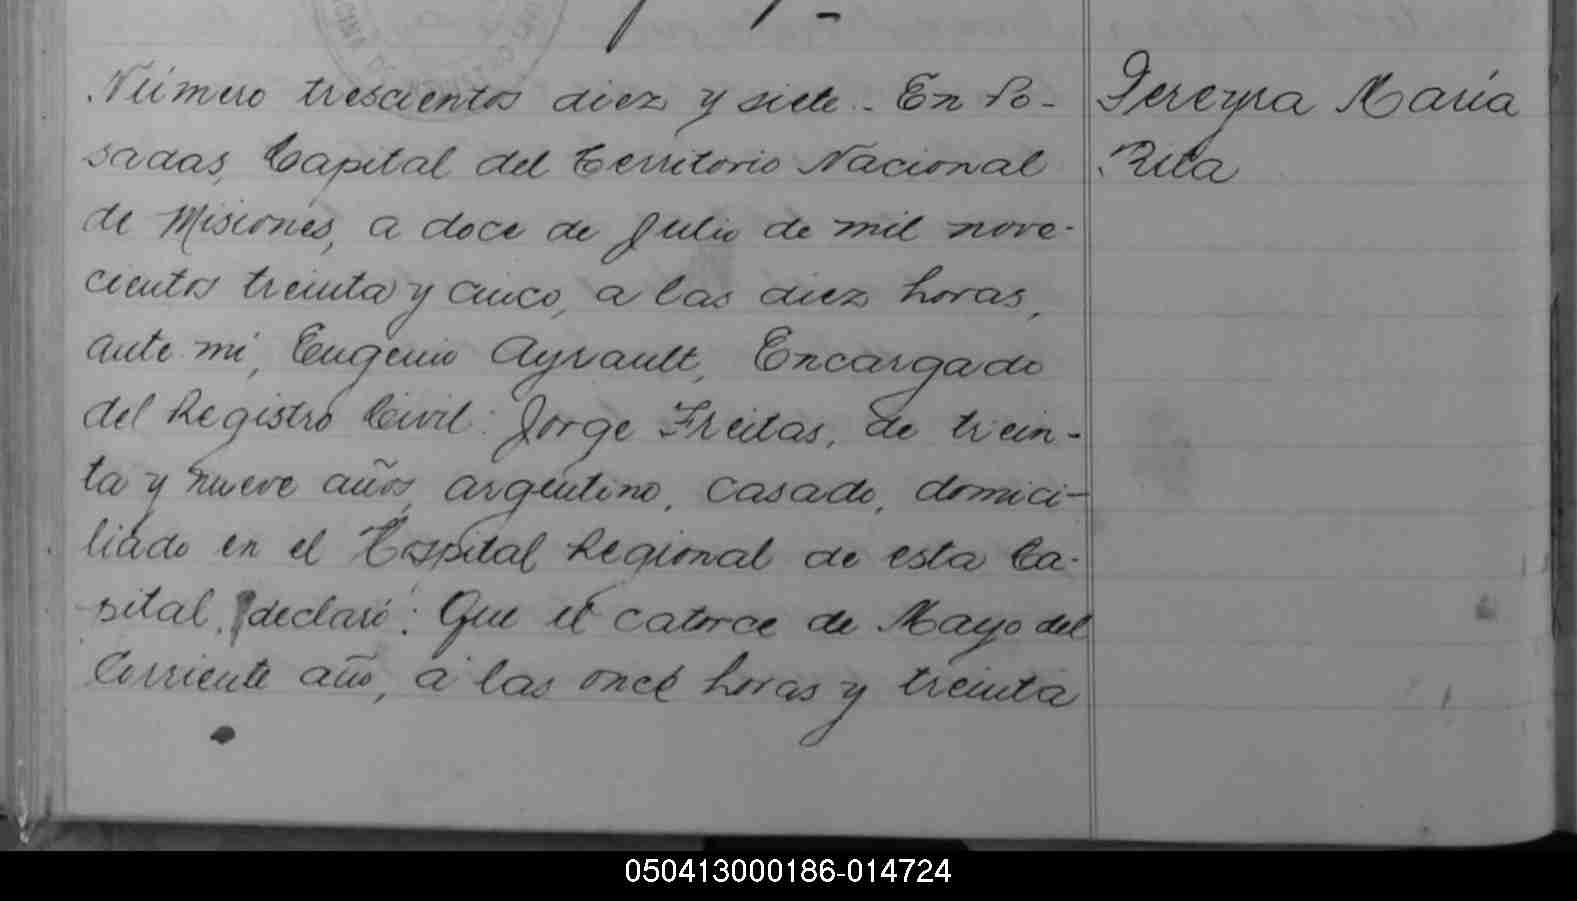 Número trescientos diez y siete. En Po-
sadas, Capital del Territorio Nacional
de Misiones, a doce de Julio de mil nove-
cientos treinta y cinco, a las diez horas,
ante mi, Eugenio Ayrault, Encargado
del Registro Civil: Jorge Freitas, de trein-
ta y nueve años, argentino, casado, domici-
liado en el Hospital Regional de esta Ca-
pital, declaró: Que el catorce de Mayo del
Corriente año, a las once horas y treinta
Pereyra María
Rita
050413000186-014724